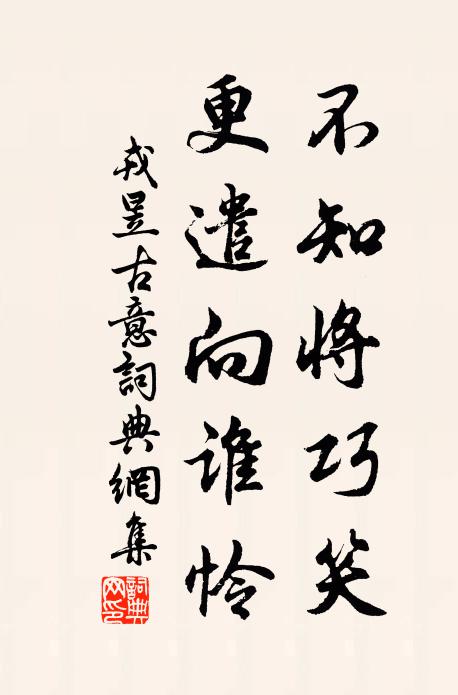 不知将巧笑
更遣向谁怜
戎昱古意詞典網集
詞典網印